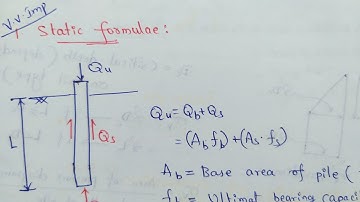 V.V. Imp
1 Static formulae:
Qu
Qu = Qb + Qs
L
Qs
= (Ab fb) + (As . fs)
Ab = Base area of pile (
fb = Ultimat bearing capaci